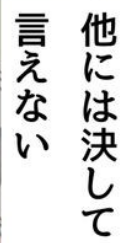 他には決して
言えない